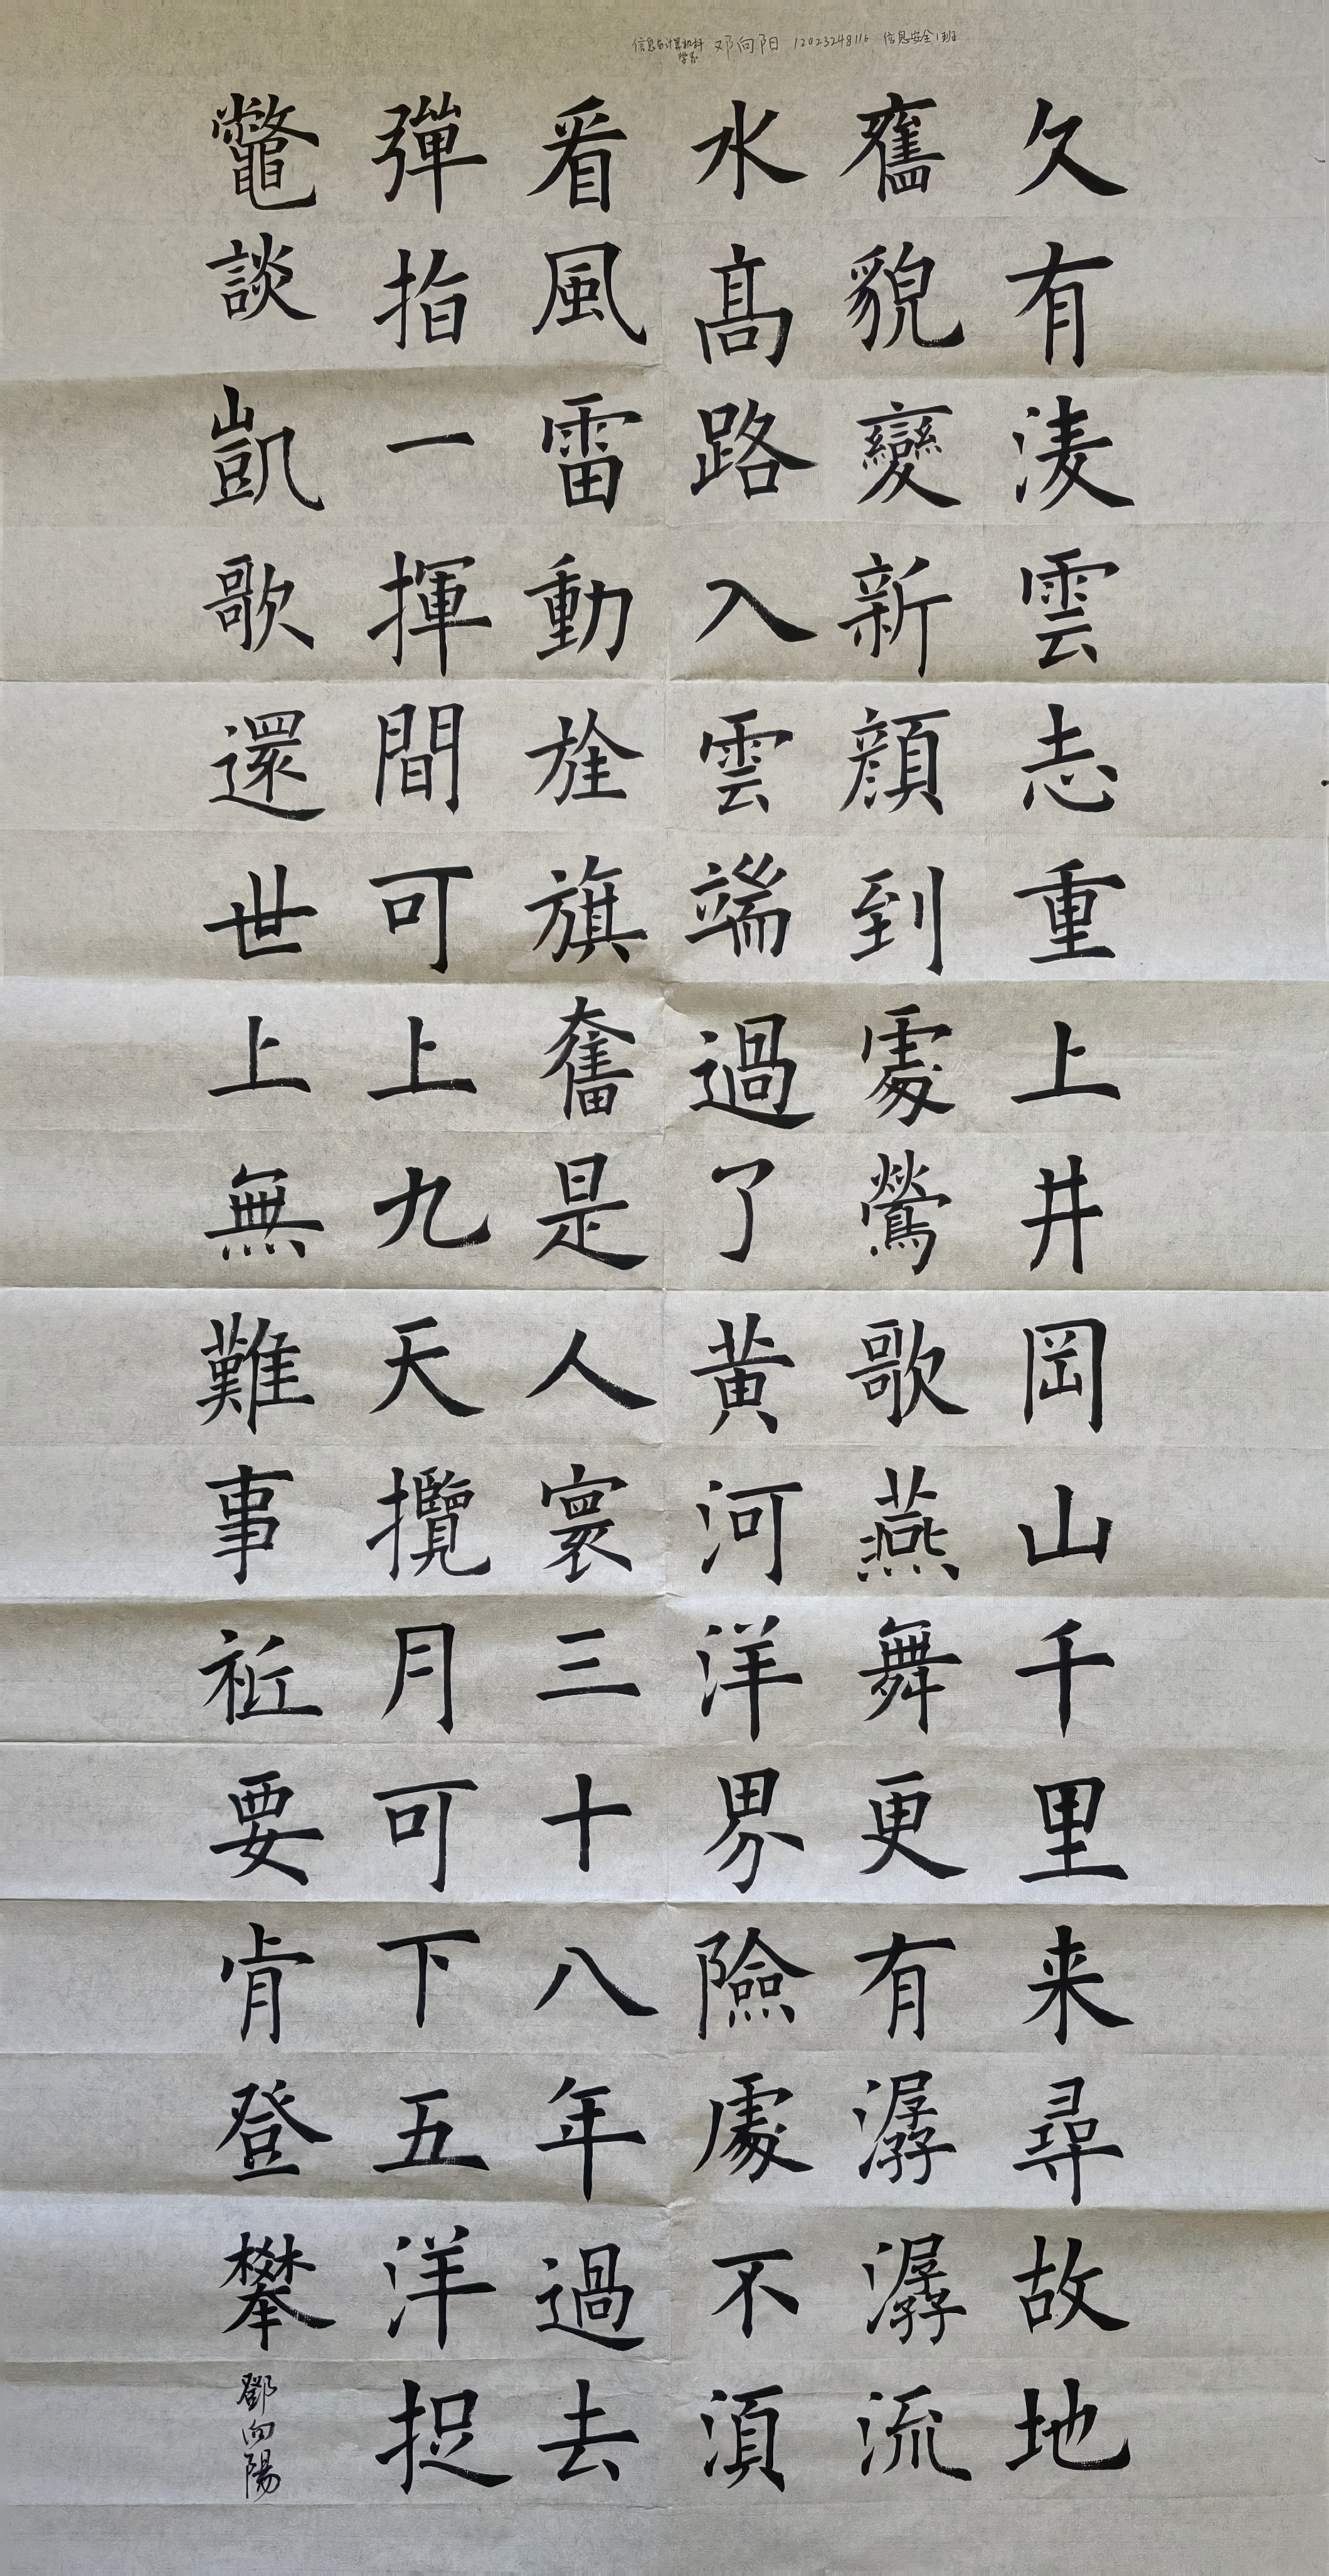 信息与计算机科学系 邓向阳 12023248116 信息安全1班
久有淩雲志重上井岡山千里来尋故地
舊貌變新顔到處鶯歌燕舞更有潺潺流
水髙路入雲端過了黄河洋界險處不湏
看風雷動旌旗奮是人寰三十八年過去
彈指一揮間可上九天攬月可下五洋捉
鼈談凱歌還世上無難事祗要肯登攀
鄧向陽